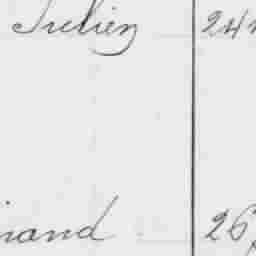 Julien 24
nand 26